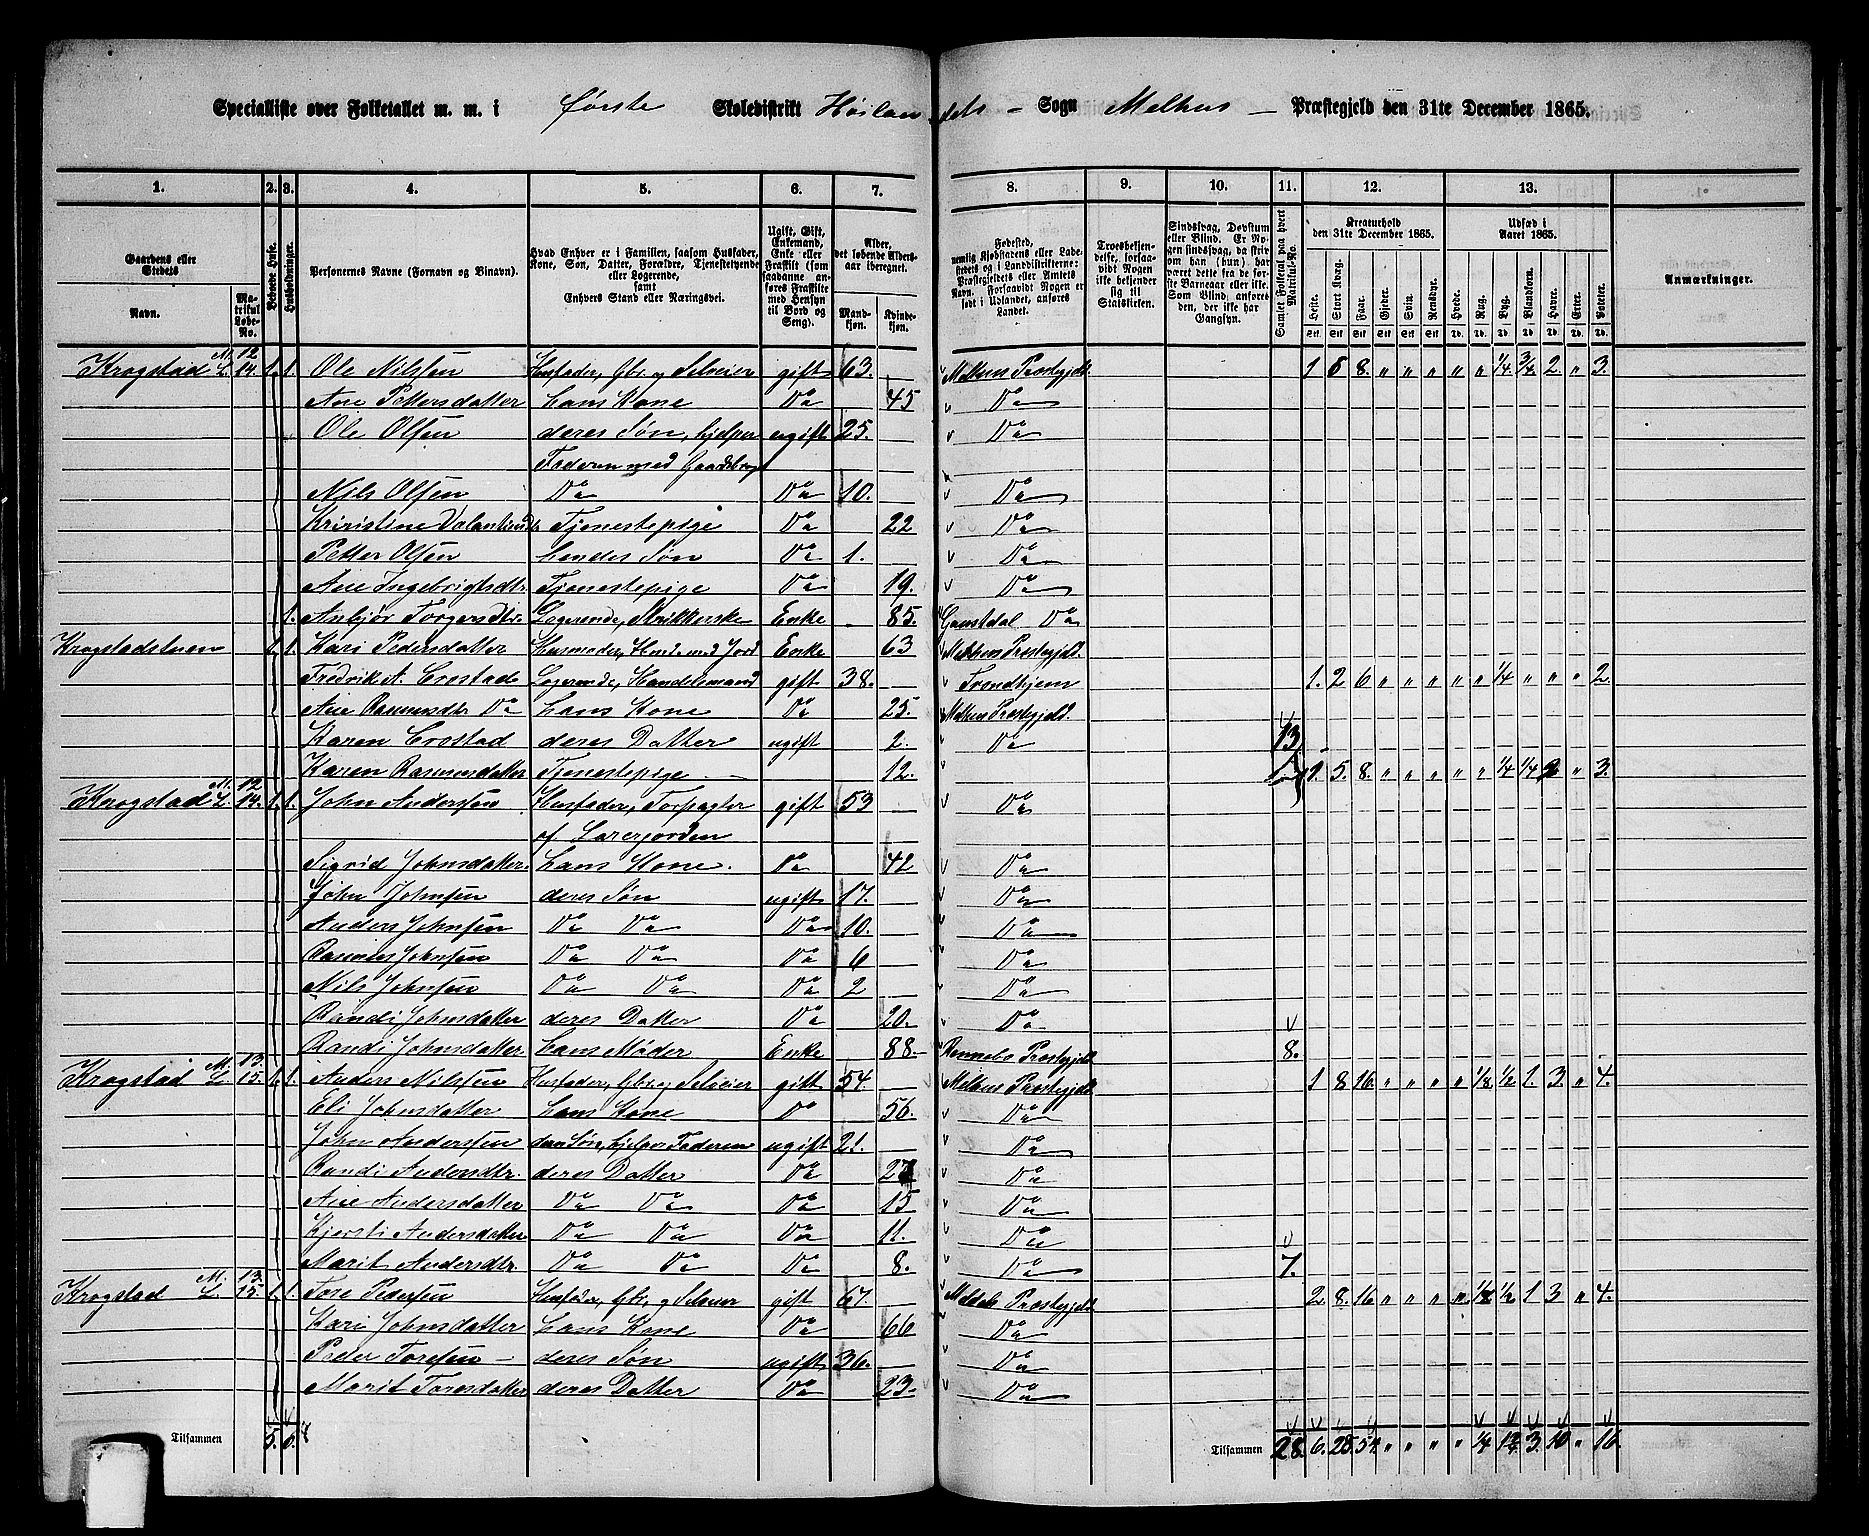 Specialliste over Folketallet m. m. i første Skoledistrikt Høilandets Sogn Melhus Præstegjeld den 31te December 1865.
1. 2. 3. 4. 5. 6. 7. 8. 9. 10. 11. 12. 13.
Gaardens eller Stedets Navn. Matrikul Løbe-No.
Beboede Huse.
Husholdninger.
Personernes Navne (Fornavn og Binavn).
Hvad Enhver er i Familien, saasom Husfader, Kone, Søn, Datter, Forældre, Tjenestetyende eller Logerende, samt Enhvers Stand eller Næringsvei.
Ugift, Gift, Enkemand, Enke eller Fraskilt (som saadanne anføres Fraskilte med Hensyn til Bord og Seng).
Alder, det løbende Aldersaar iberegnet. Mandkjøn. Kvindekjøn.
Fødested, nemlig Kjøbstadens eller Ladestedets og i Landdistrikterne: Præstegjeldets eller Amtets Navn. Forsaavidt Nogen er født i Udlandet, anføres Landet.
Troesbekjendelse, forsaavidt Nogen ikke bekjender sig til Statskirken.
Sindssvag, Døvstum eller Blind. Er Nogen sindssvag, da skrives om han (hun) har været dette fra de første Barneaar eller ikke. Som Blind anføres den, der ikke har Gangsyn.
Samlet Folketal paa hvert Matrikul-No.
Kreaturhold den 31te December 1865. Heste. Stort Kvæg. Faar. Gjeder. Svin. Rensdyr.
Udsæd i Aaret 1865. Hvede. Rug. Byg. Blandkorn. Havre. Erter. Poteter.
Anmærkninger.
Krogstad M. 12 L. 14. 1. 1. Ole Nilsen Husfader, Gbr. og Selveier gift 63. Melhus Præstegjeld. 1 6 8. " " " " " 1/4 3/4 2. " 3.
Ane Pettersdatter hans Kone Do 45 Do
Ole Olsen deres Søn, hjelper ugift 25. Do
Faderen med Gaardsbrug
Nils Olsen Do Do 10. Do
Tjenestepige Do 22 Do
Petter Olsen hendes Søn Do 1. Do
Ane Ingebrigtsdtr. Tjenestepige Do 19. Do
1. Anbjør Torgersdtr. Logerende, Strikkerske Enke 85. Do
Krogstadstuen 1. 1. Kari Pedersdatter Husmoder, Husm. med Jord Enke 63 Melhus Præstegjeld.
Fredrik A. Crostad Logerende, Handelsmand gift 38. Trondhjem 1. 2 6 " " " " " 1/4 " " " 2.
Ane Rasmusdtr. Do hans Kone Do 25. Melhus Præstegjeld.
Karen Crostad deres Datter ugift 2. Do 13
Karen Rasmusdatter Tjenestepige 12. 1. 5. 8. " " " " " 1/4 1/4 2 " 3.
Krogstad M. 12 L. 14. 1. 1. John Andersen Husfader, Forpagter gift 53 Do
af
Sigrid Johnsdatter. hans Kone. Do 42 Do
John Johnsen deres Søn ugift 17. Do
Anders Johnsen Do Do Do 10. Do
Rasmus Johnsen Do Do Do 6 Do
Nils Johnsen Do Do Do 2 Do
Randi Johnsdatter deres Datter Do 20. Do
Randi Johnsdatter hans Moder Enke 88. Rennebo Præstegjeld 8.
Krogstad M. 13. L. 15. 1. 1. Anders Nilsen Husfader, Gbr. og Selveier gift 54. Melhus Præstegjeld 1 8 16. " " " " 1/8 1/2 1. 3. " 4.
Eli Johnsdatter hans Kone Do 56. Do
John Andersen deres Søn, hjelper Faderen ugift 21. Do
Randi Andersdtr. deres Datter Do Do
Ane Andersdatter Do Do Do 15 Do
Kjersti Andersdatter Do Do Do 11. Do
Marit Andersdtr. Do Do Do 8. Do 7.
Krogstad M. 13. L. 15. 1. 1. Tore Pedersen Husfader, Gbr. og Selveier gift 67. Præstegjeld 2. 8. 16 " " " " 1/8 1/2 1 3 " 4.
Kari Johnsdatter hans Kone Do 66 Do
Peder Toresen deres Søn ugift 36. Do
Marit Toresdatter deres Datter Do 23. Do
Tilsammen 5. 6. Tilsammen 28. 6. 54 " " " " 1/4 3. 10 " 16.